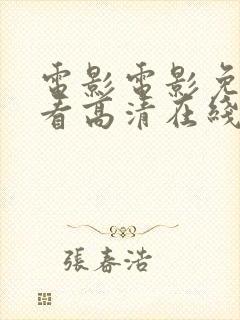 電影電影免
看高清在綫
張春浩